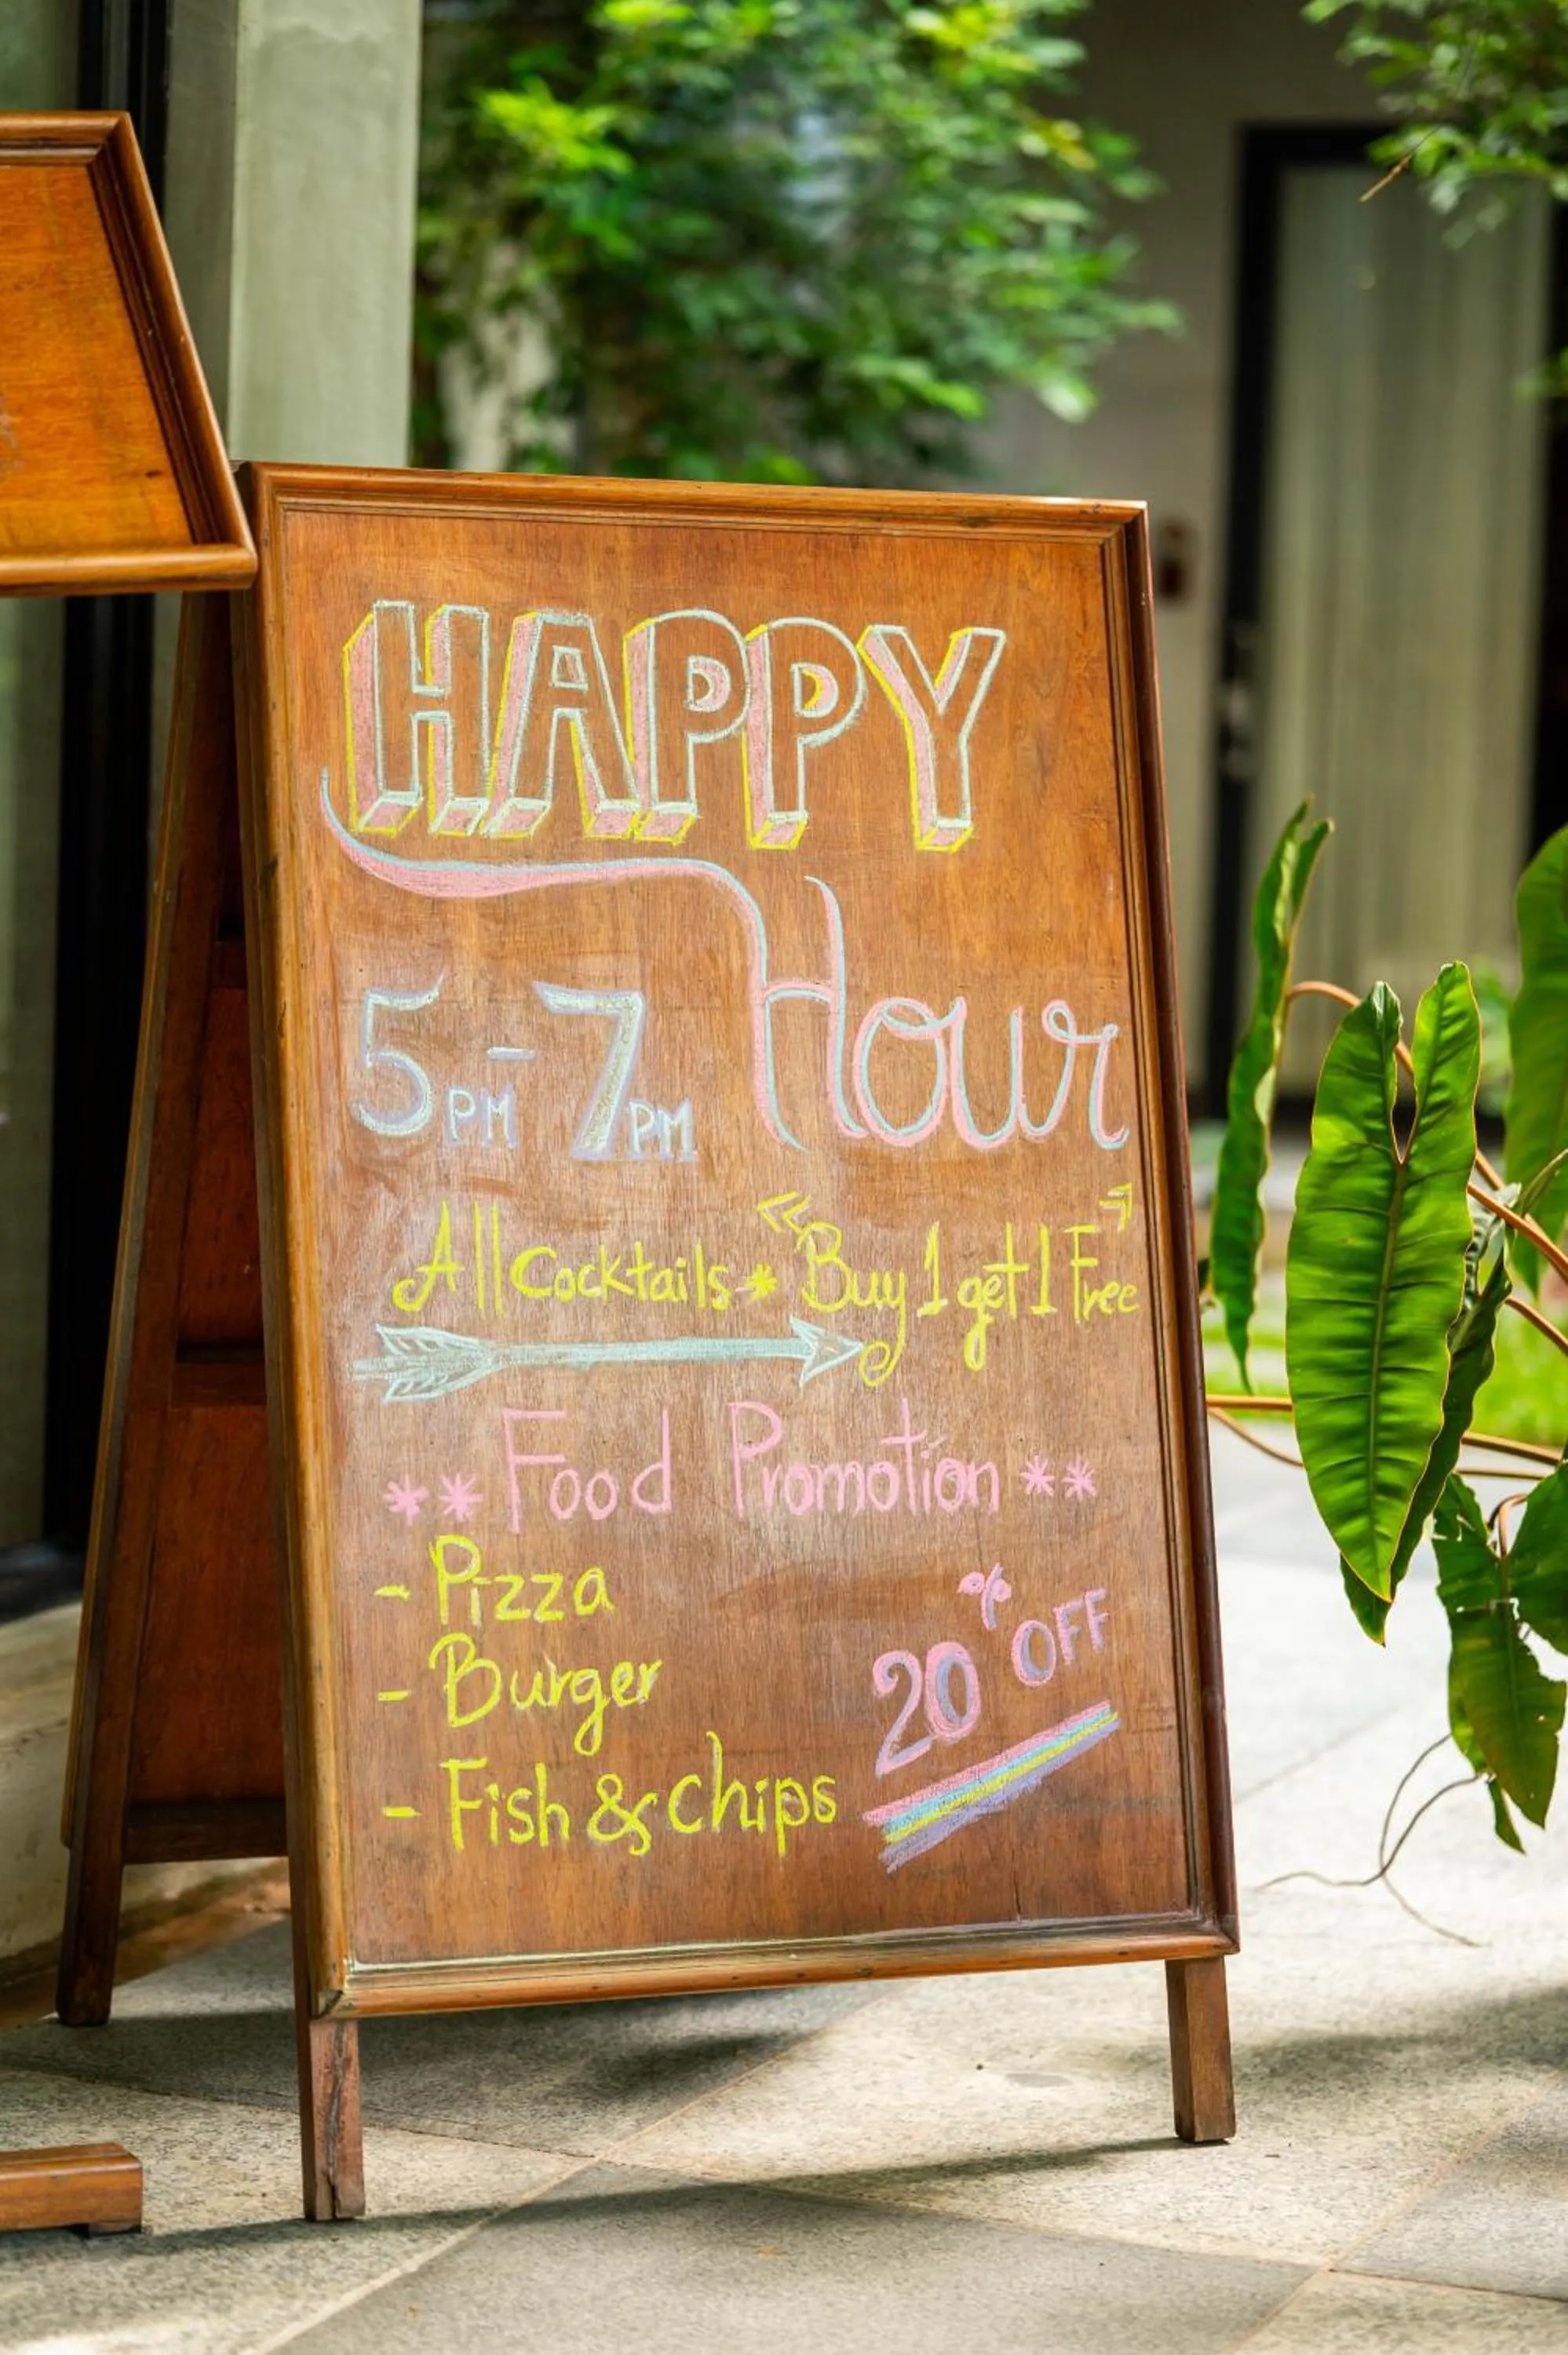 HAPPY
Hour
5PM - 7PM
All Cocktails * "Buy 1 get 1 Free"
** Food Promotion **
- Pizza
- Burger
- Fish & chips
20% OFF